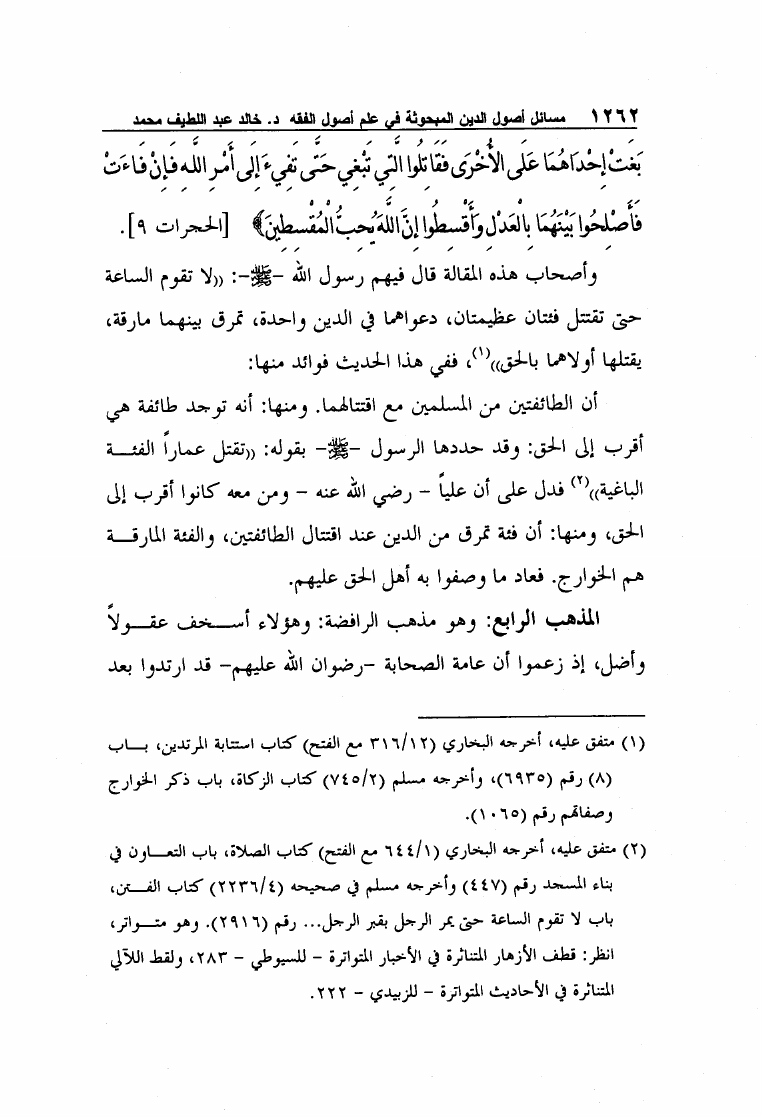 ١٢٦٢ مسائل أصول الدين المبحوثة في علم أصول الفقه د. خالد عبد اللطيف محمد
بَغَتْ إِحْدَاهُمَا عَلَى الأُخْرَى فَقَاتِلُوا الَّتِي تَبْغِي حَتَّى تَفِيءَ إِلَى أَمْرِ اللَّهِ فَإِنْ فَاءَتْ
فَأَصْلِحُوا بَيْنَهُمَا بِالْعَدْلِ وَأَقْسِطُوا إِنَّ اللَّهَ يُحِبُّ الْمُقْسِطِينَ﴾ [الحجرات ٩].
وأصحاب هذه المقالة قال فيهم رسول الله -ﷺ-: ((لا تقوم الساعة
حتى تقتتل فئتان عظيمتان، دعواهما في الدين واحدة، تمرق بينهما مارقة،
يقتلها أولاهما بالحق))(١)، ففي هذا الحديث فوائد منها:
أن الطائفتين من المسلمين مع اقتتالهما. ومنها: أنه توجد طائفة هي
أقرب إلى الحق: وقد حددها الرسول -ﷺ- بقوله: ((تقتل عماراً الفئـــة
الباغية))(٢) فدل على أن علياً - رضي الله عنه - ومن معه كانوا أقرب إلى
الحق، ومنها: أن فئة تمرق من الدين عند اقتتال الطائفتين، والفئة المارقـــة
هم الخوارج. فعاد ما وصفوا به أهل الحق عليهم.
المذهب الرابع: وهو مذهب الرافضة: وهؤلاء أســـخف عقـــولاً
وأضل، إذ زعموا أن عامة الصحابة -رضوان الله عليهم- قد ارتدوا بعد
(١) متفق عليه، أخرجه البخاري (٣١٦/١٢ مع الفتح) كتاب استتابة المرتدين، بـــاب
(٨) رقم (٦٩٣٥)، وأخرجه مسلم (٧٤٥/٢) كتاب الزكاة، باب ذكر الخوارج
وصفاتهم رقم (١٠٦٥).
(٢) متفق عليه، أخرجه البخاري (٦٤٤/١ مع الفتح) كتاب الصلاة، باب التعـــاون في
بناء المسجد رقم (٤٤٧) وأخرجه مسلم في صحيحه (٢٢٣٦/٤) كتاب الفـــتن،
باب لا تقوم الساعة حتى يمر الرجل بقبر الرجل... رقم (٢٩١٦). وهو متـــواتر،
انظر: قطف الأزهار المتناثرة في الأخبار المتواترة - للسيوطي - ٢٨٣، ولقط اللآلي
المتناثرة في الأحاديث المتواترة - للزبيدي - ٢٢٢.